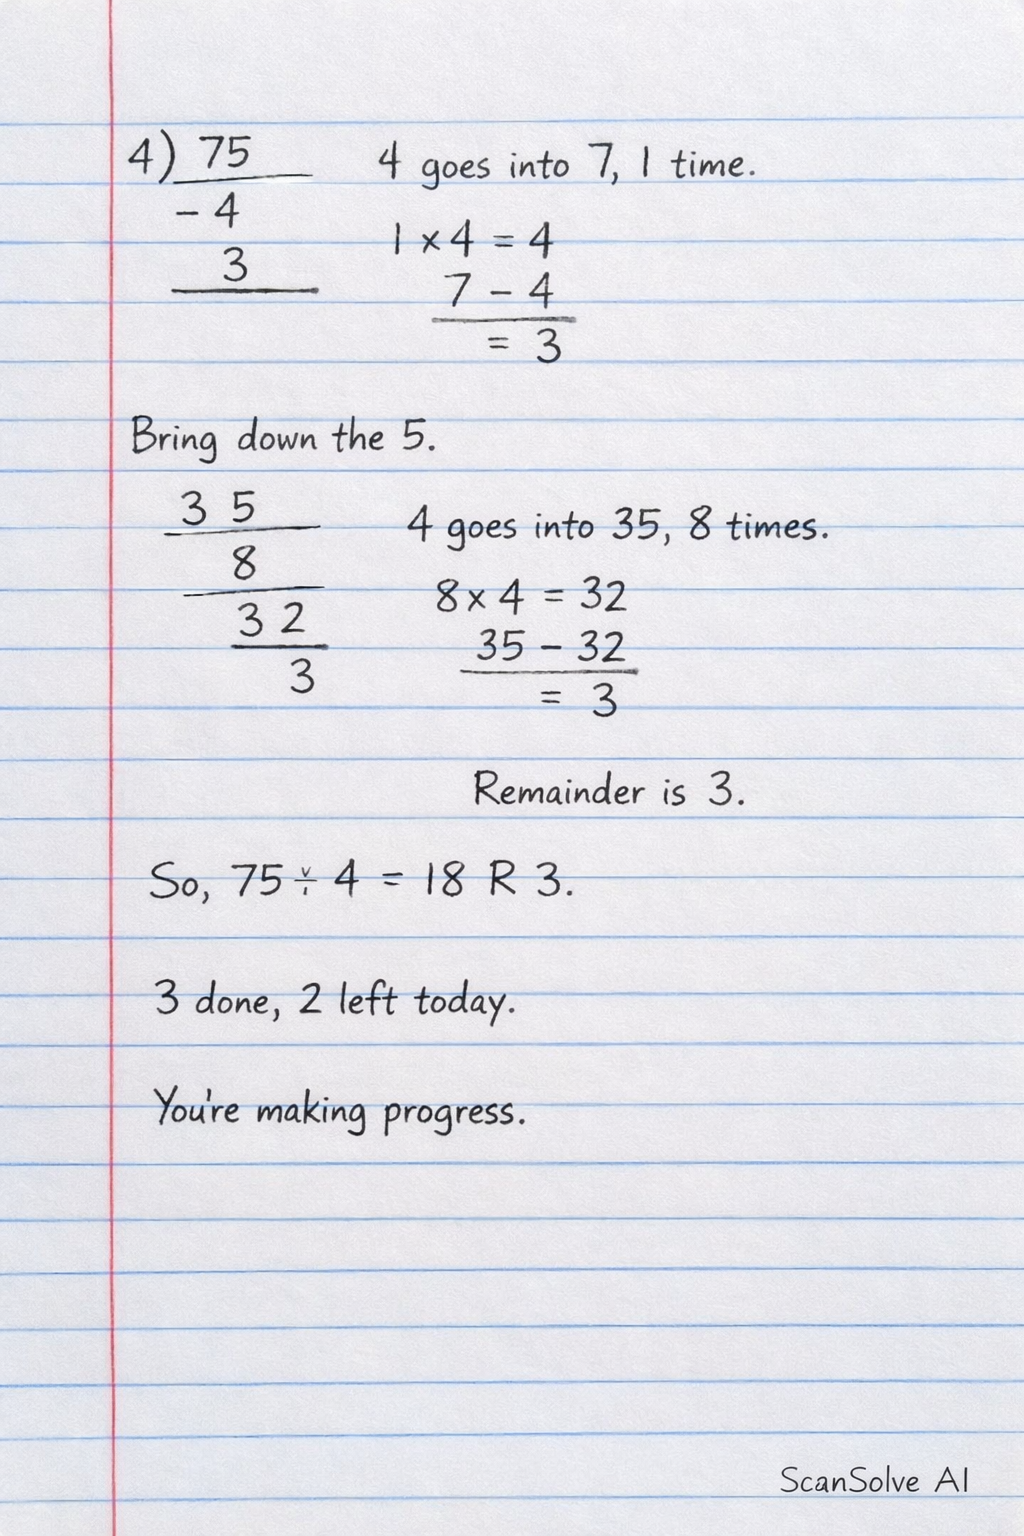 4) 75    4 goes into 7, 1 time.
- 4    1 × 4 = 4
3    7 - 4
= 3
Bring down the 5.
3 5    4 goes into 35, 8 times.
8    8 × 4 = 32
3 2    35 - 32
3    = 3
Remainder is 3.
So, 75 ÷ 4 = 18 R 3.
3 done, 2 left today.
You're making progress.
ScanSolve AI